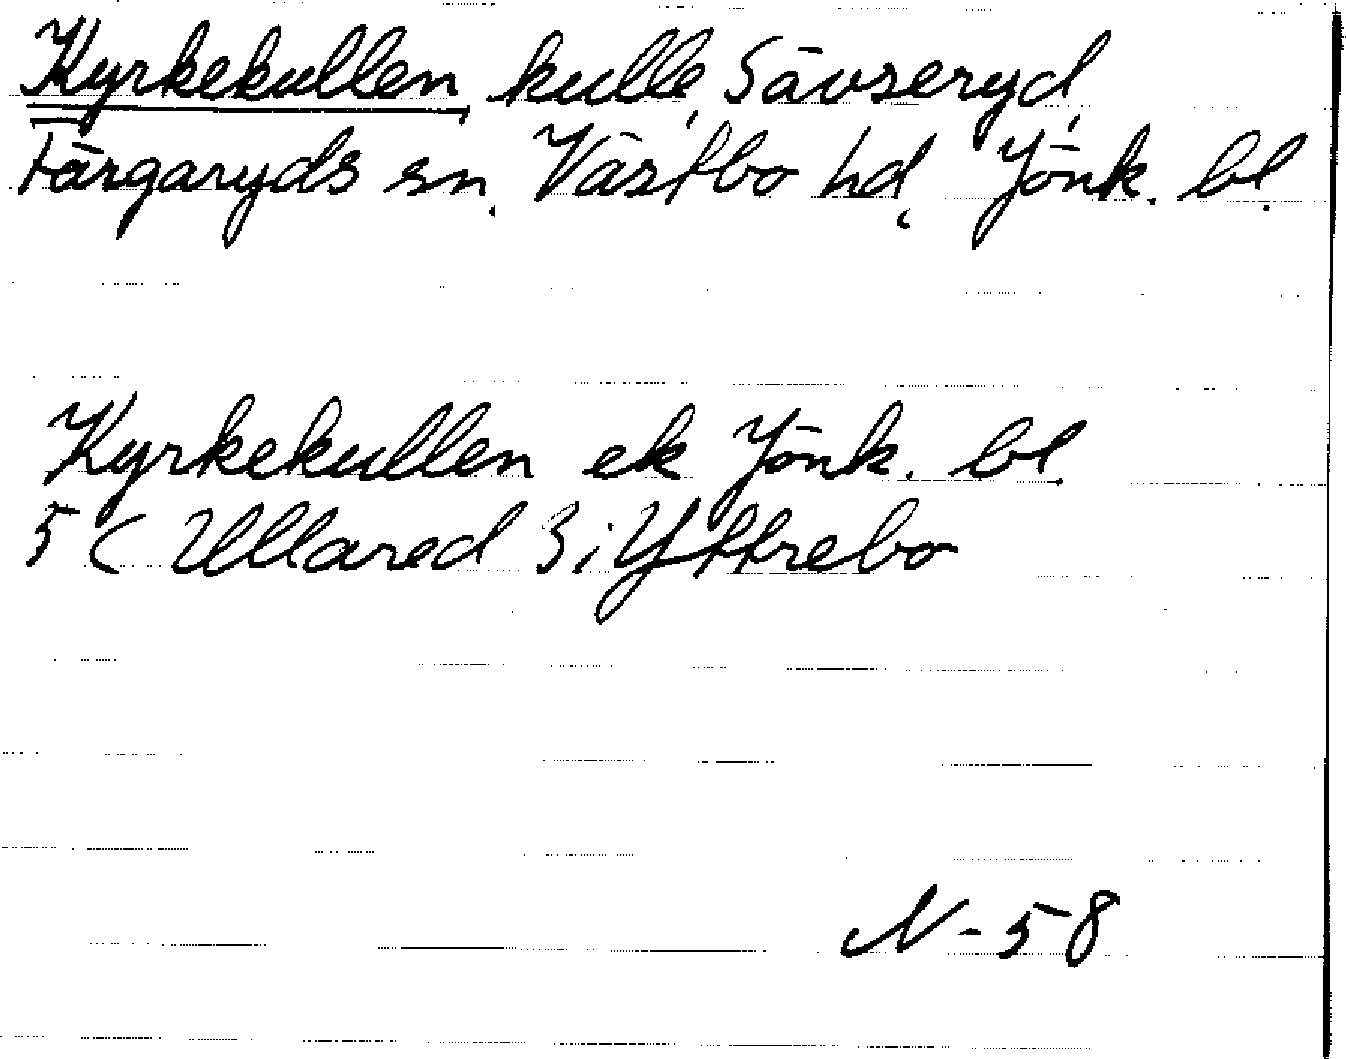 Kyrkekullen, kulle, Sävseryd,
Färgaryds sn, Västbo hd, Jönk. bl.
Kyrkekullen ek Jönk. bl.
5 C Ullared 3 i Yttrebo
N-58